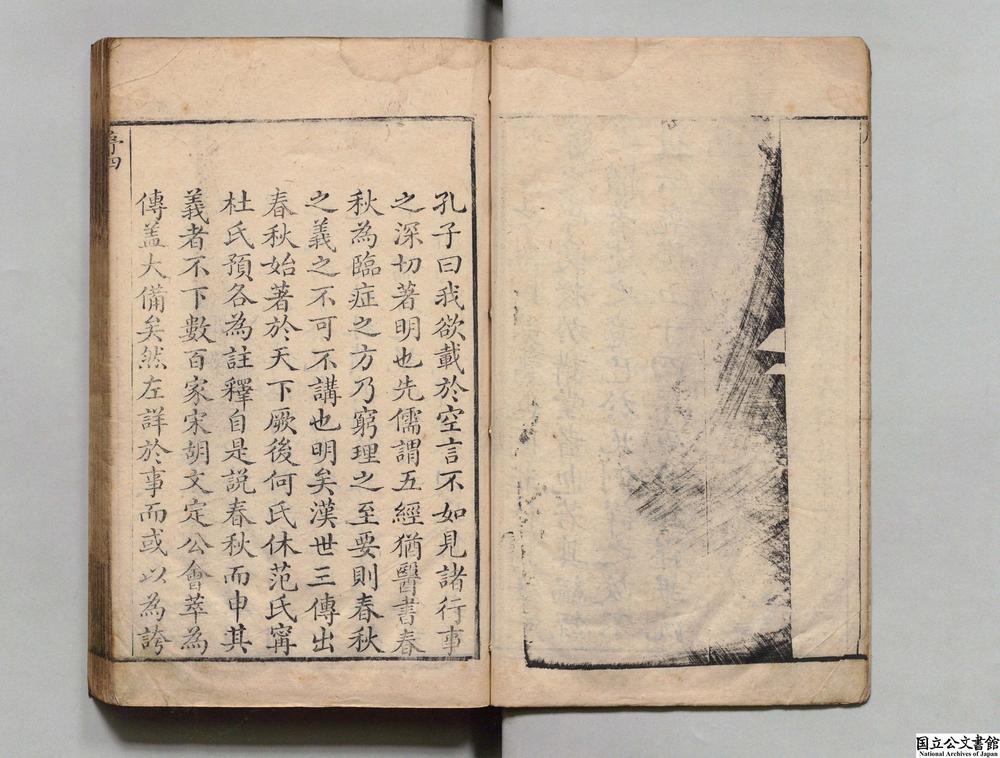 孔子曰我欲載於空言不如見諸行事
之深切著明也先儒謂五經猶醫書春
秋為臨症之方乃窮理之至要則春秋
之義之不可不講也明矣漢世三傳出
春秋始著於天下厥後何氏休范氏寗
杜氏預各為註釋自是説春秋而申其
義者不下數百家宋胡文定公會萃為
傳盖大備矣然左詳於事而或以為誇
序四
国立公文書館
National Archives of Japan